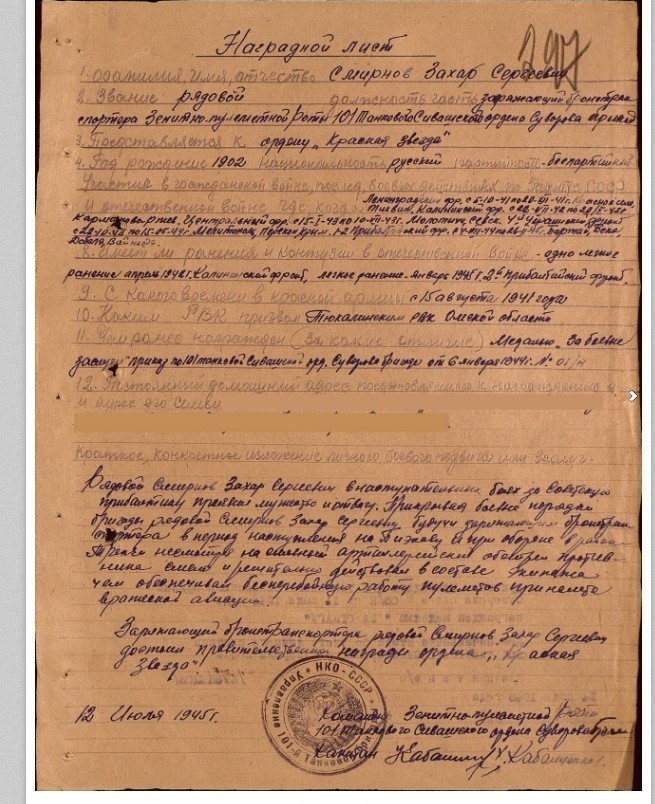 Наградной лист
297
1. Фамилия, имя, отчество Смирнов Захар Сергеевич
2. Звание рядовой должность часть заряжающий бронетран
спортера Зенитно-пулеметной роты 101 Танковой Сивашской ордена Суворова бригады
3. Представляется к ордену „Красная Звезда"
4. Год рождения 1902 национальность русский партийность - беспартийный
Участие в гражданской войне, послед. боевых действиях по защите СССР
и отечественной войне где, когда Ленинградский фр. с 5-10-41 по
Калининский фр.
Центральный фр. с 15-I-43 по
Мелитополь, Перекоп, Крым. 1-2 Прибалтийский фр.
8. Имеет ли ранения и контузии в отечественной войне - одно легкое
ранение апрель Калининский фронт, легкое ранение - Январь 1945 г. 2й Прибалтийский фронт.
9. С какого времени в красной армии с 15 августа 1941 года
10. Каким РВК призван Тюкалинским РВК Омской области
11. Чем ранее награжден (за какие отличия) Медалью „За боевые
заслуги" приказ по 101 танковой Сивашской орд. Суворова бригаде от 6 января №
12. Постоянный домашний адрес представляемого к награждению и
и адрес его семьи
Краткое, конкретное изложение личного боевого подвига или заслуг.
Рядовой Смирнов Захар Сергеевич в наступательных боях за Советскую
прибалтику проявил мужество и отвагу. Прикрывая боевые порядки
бригады рядовой Смирнов Захар Сергеевич будучи заряжающим бронетран
спортера в период наступления на и при обороне в районе
несмотря на сильный артиллерийский обстрел против-
ника смело и решительно действовал в составе экипажа
чем обеспечивал бесперебойную работу пулеметов при налете
вражеской авиации.
Заряжающий бронетранспортера рядовой Смирнов Захар Сергеевич
достоин правительственной награды ордена „Красная
Звезда"
НКО - СССР
Управление
12 Июля 1945 г.
Командир Зенитно-пулеметной роты
101 Танковой Сивашской ордена Суворова бригады
Капитан